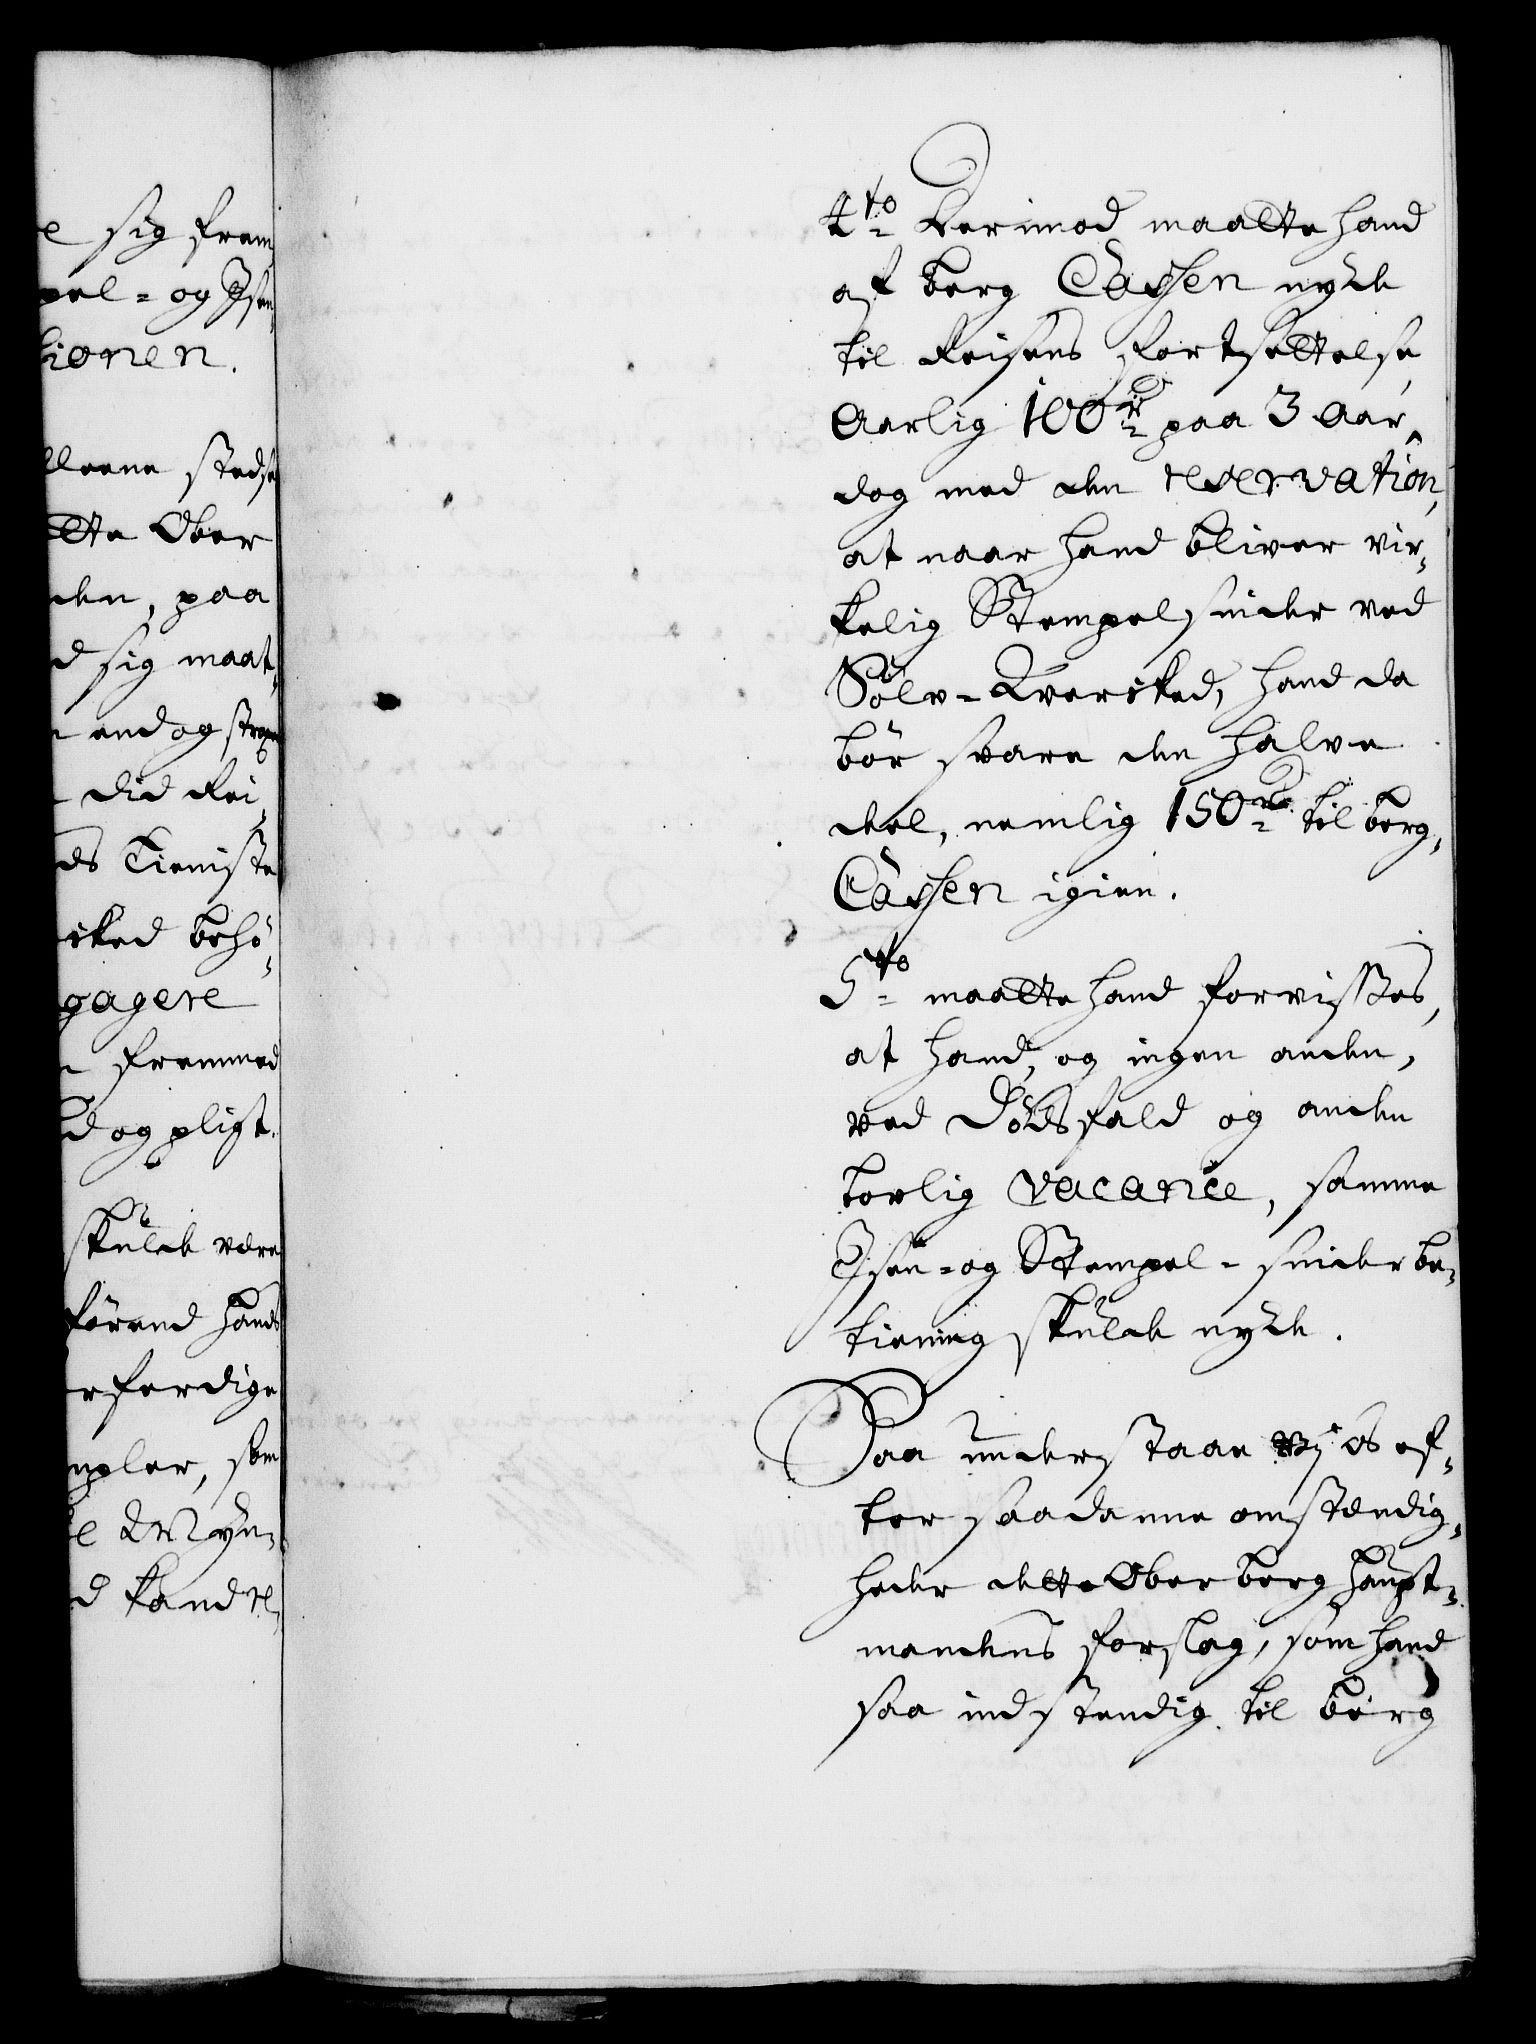 e sig frem,
pel- og Isen-
tionen.
lerne stedse
tte Ober
den, paa
d sig maat-
end og strax
did Rei,
ds Tieniste
ked behø-
gagere
fremmed
d og pligt.
skulde være
førend hands
rferdige
mpler, som
d kand re-
4to Derimod maatte hand
af berg Cassen nyde
til Reisens fortsættelse,
Aarlig 100 rd paa 3 Aar,
dog med den reservation,
at naar hand bliver vir-
kelig Stempelsnider ved
Sølv-Verked, hand da
bør svare den halve
deel, nemlig 150 rd til berg-
Cassen igien.
5to maatte hand forvisses,
at hand, og ingen anden,
ved Dødsfald og anden
lovlig vacance, samme
Isen- og Stempel-snider be-
tiening skulde nyde.
Paa understaae vj os ef-
ter saadanne omstendig-
heder dette Ober berg Haupt-
mandens forslag, som hand
saa indstendig til berg